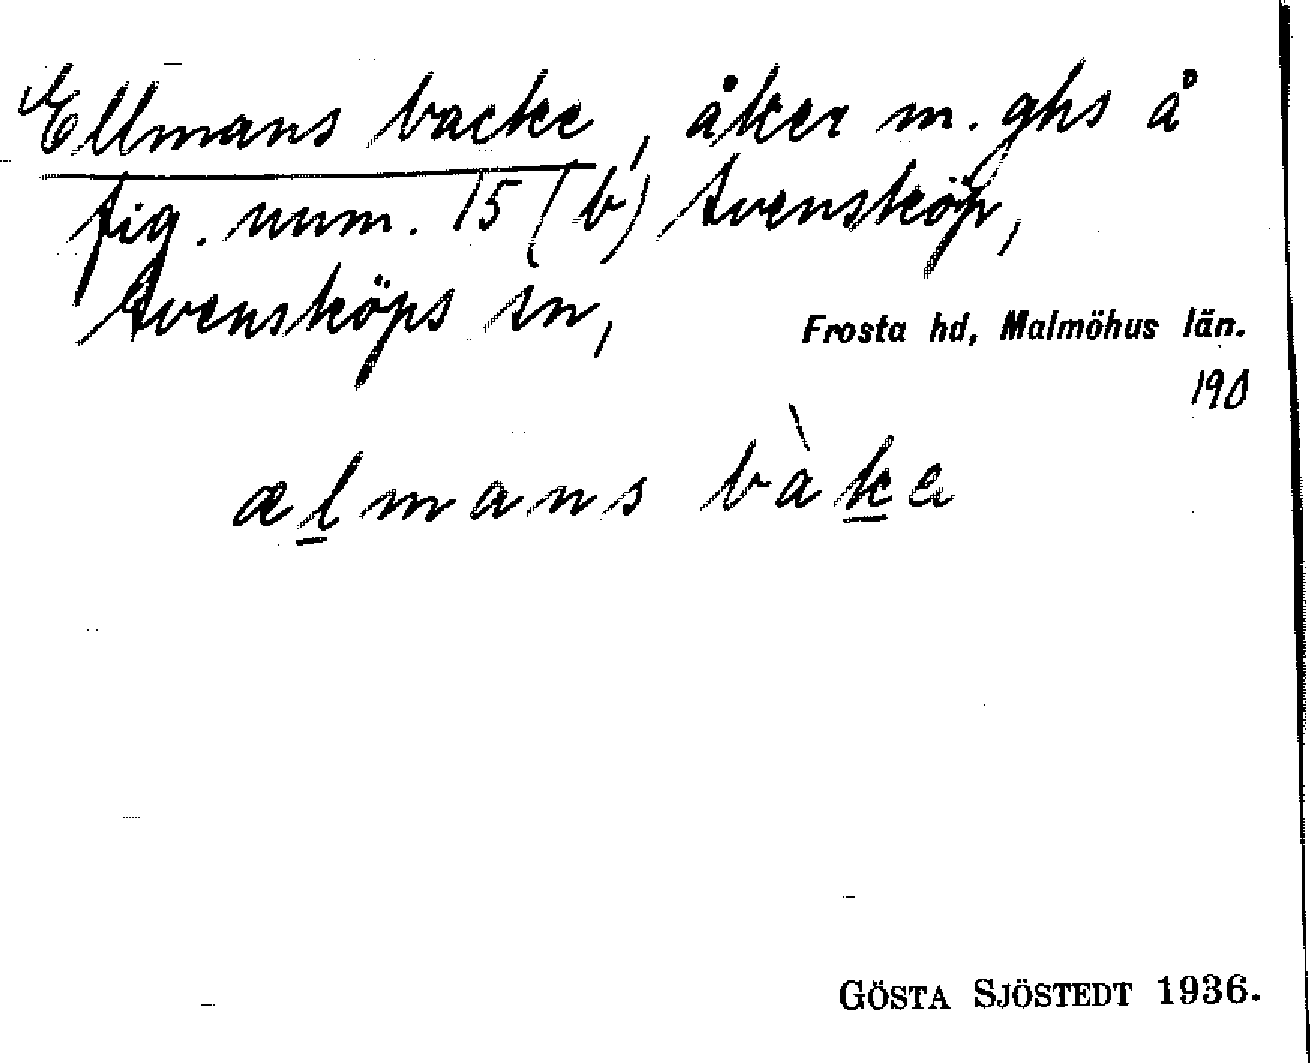 Ellmans backe, åker m. ghs å
fig. num. 15 (b) Svensköp,
Svensköps sn, Frosta hd, Malmöhus län.
190
ælmans bàka
GÖSTA SJÖSTEDT 1936.